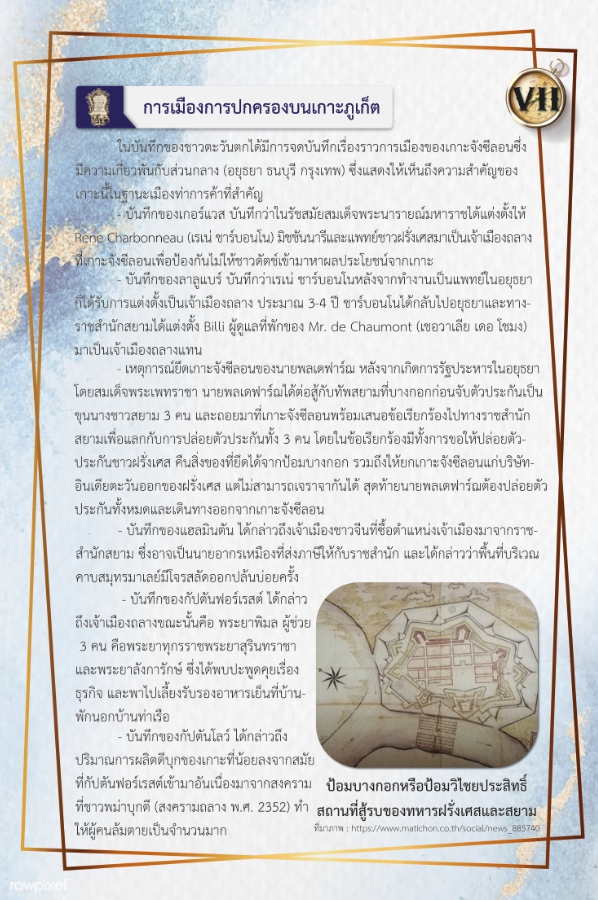 VII
การเมืองการปกครองบนเกาะภูเก็ต
ในบันทึกของชาวตะวันตกได้มีการจดบันทึกเรื่องราวการเมืองของเกาะจังซีลอนซึ่ง
มีความเกี่ยวพันกับส่วนกลาง (อยุธยา ธนบุรี กรุงเทพ) ซึ่งแสดงให้เห็นถึงความสำคัญของ
เกาะนี้ในฐานะเมืองท่าการค้าที่สำคัญ
- บันทึกของเกอร์แวส บันทึกว่าในรัชสมัยสมเด็จพระนารายณ์มหาราชได้แต่งตั้งให้
Rene Charbonneau (เรเน่ ชาร์บอนโน) มิชชันนารีและแพทย์ชาวฝรั่งเศสมาเป็นเจ้าเมืองถลาง
ที่เกาะจังซีลอนเพื่อป้องกันไม่ให้ชาวดัตช์เข้ามาหาผลประโยชน์จากเกาะ
- บันทึกของลาลูแบร์ บันทึกว่าเรเน่ ชาร์บอนโนหลังจากทำงานเป็นแพทย์ในอยุธยา
ก็ได้รับการแต่งตั้งเป็นเจ้าเมืองถลาง ประมาณ 3-4 ปี ชาร์บอนโนได้กลับไปอยุธยาและทาง-
ราชสำนักสยามได้แต่งตั้ง Billi ผู้ดูแลที่พักของ Mr. de Chaumont (เชอวาเลีย เดอ โชมง)
มาเป็นเจ้าเมืองถลางแทน
- เหตุการณ์ยึดเกาะจังซีลอนของนายพลเดฟาร์ฌ หลังจากเกิดการรัฐประหารในอยุธยา
โดยสมเด็จพระเพทราชา นายพลเดฟาร์ฌได้ต่อสู้กับทัพสยามที่บางกอกก่อนจับตัวประกันเป็น
ขุนนางชาวสยาม 3 คน และถอยมาที่เกาะจังซีลอนพร้อมเสนอข้อเรียกร้องไปทางราชสำนัก
สยามเพื่อแลกกับการปล่อยตัวประกันทั้ง 3 คน โดยในข้อเรียกร้องมีทั้งการขอให้ปล่อยตัว-
ประกันชาวฝรั่งเศส คืนสิ่งของที่ยึดได้จากป้อมบางกอก รวมถึงให้ยกเกาะจังซีลอนแก่บริษัท-
อินเดียตะวันออกของฝรั่งเศส แต่ไม่สามารถเจราจากันได้ สุดท้ายนายพลเดฟาร์ฌต้องปล่อยตัว
ประกันทั้งหมดและเดินทางออกจากเกาะจังซีลอน
- บันทึกของแฮลมินตัน ได้กล่าวถึงเจ้าเมืองชาวจีนที่ซื้อตำแหน่งเจ้าเมืองมาจากราช-
สำนักสยาม ซึ่งอาจเป็นนายอากรเหมืองที่ส่งภาษีให้กับราชสำนัก และได้กล่าวว่าพื้นที่บริเวณ
คาบสมุทรมาเลย์มีโจรสลัดออกปล้นบ่อยครั้ง
- บันทึกของกัปตันฟอร์เรสต์ ได้กล่าว
ถึงเจ้าเมืองถลางขณะนั้นคือ พระยาพิมล ผู้ช่วย
3 คน คือพระยาทุกรราชพระยาสุรินทราชา
และพระยาลังการักษ์ ซึ่งได้พบปะพูดคุยเรื่อง
ธุรกิจ และพาไปเลี้ยงรับรองอาหารเย็นที่บ้าน-
พักนอกบ้านท่าเรือ
- บันทึกของกัปตันโลว์ ได้กล่าวถึง
ปริมาณการผลิตดีบุกของเกาะที่น้อยลงจากสมัย
ที่กัปตันฟอร์เรสต์เข้ามาอันเนื่องมาจากสงคราม
ที่ชาวพม่าบุกตี (สงครามถลาง พ.ศ. 2352) ทำ
ให้ผู้คนล้มตายเป็นจำนวนมาก
ป้อมบางกอกหรือป้อมวิไชยประสิทธิ์
สถานที่สู้รบของทหารฝรั่งเศสและสยาม
ที่มาภาพ : https://www.matichon.co.th/social/news_885740
rawpixel